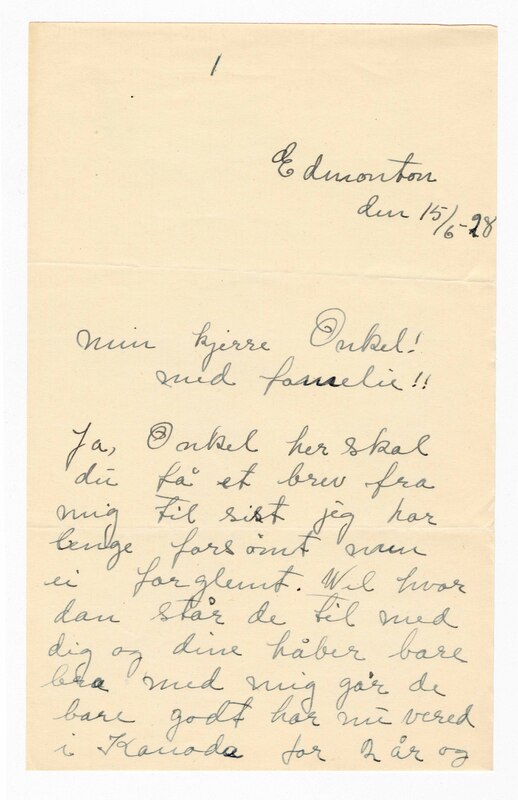 1
Edmonton
den 15/6-28
min kjerre Onkel!
med familie!!
Ja, Onkel her skal
du få et brev fra
mig til sist jeg har
lenge forsömt men
ei forglemt. Wel hvor
dan står de til med
dig og dine håber bare
bra med mig går de
bare godt har nu vered
i Kanada for 2 år og